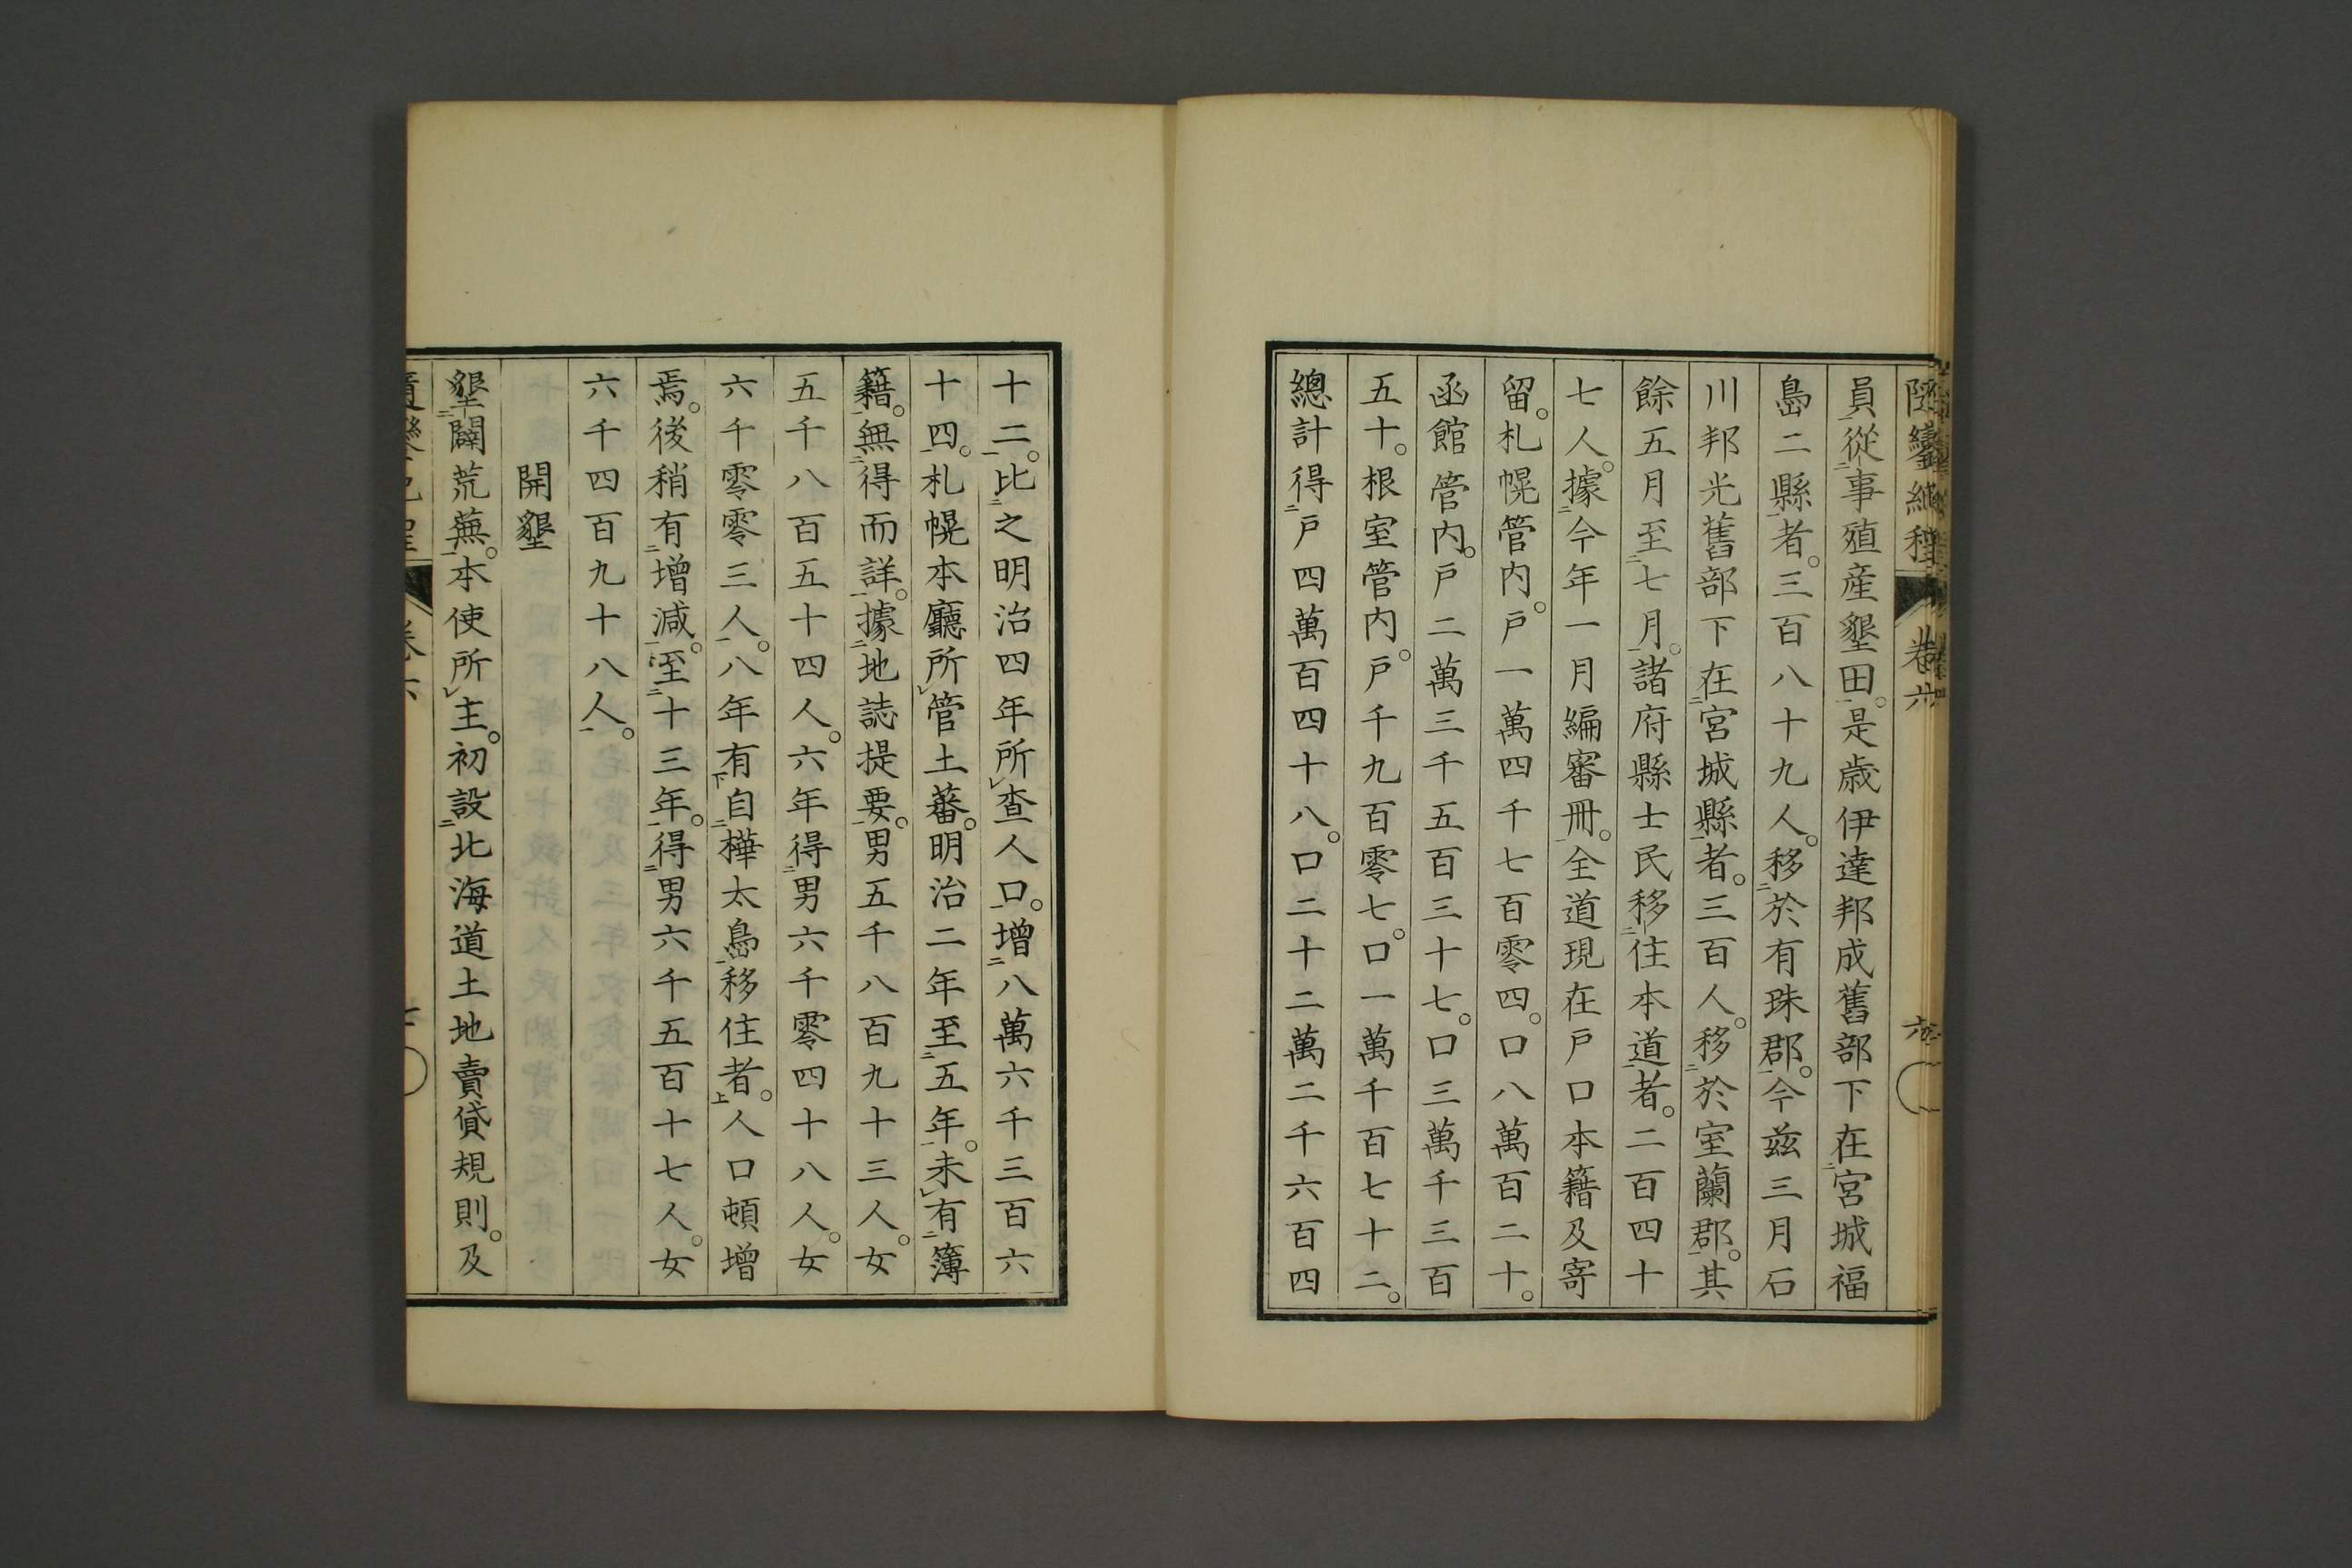 員從事殖産墾田。是歲伊達邦成舊部下在宮城福
島二縣者。三百八十九人。移於有珠郡。今茲三月石
川邦光舊部下在宮城縣者。三百人。移於室蘭郡。其
餘五月至七月。諸府縣士民移住本道者。二百四十
七人。據今年一月編審冊。全道現在戶口本籍及寄
留。札幌管内。戶一萬四千七百零四。口八萬百二十。
函館管内。戶二萬三千五百三十七。口三萬千三百
五十。根室管内。戶千九百零七。口一萬千百七十二。
總計得戶四萬百四十八。口二十二萬二千六百四
十二。比之明治四年所查人口。增八萬六千三百六
十四。札幌本廳所管土蕃。明治二年至五年。未有簿
籍。無得而詳。據地誌提要。男五千八百九十三人。女
五千八百五十四人。六年得男六千零四十八人。女
六千零零三人。八年有自樺太島移住者。人口頓增
焉。後稍有增減。至十三年。得男六千五百十七人。女
六千四百九十八人。
開墾
墾闢荒蕪。本使所主。初設北海道土地賣貸規則。及
卷六